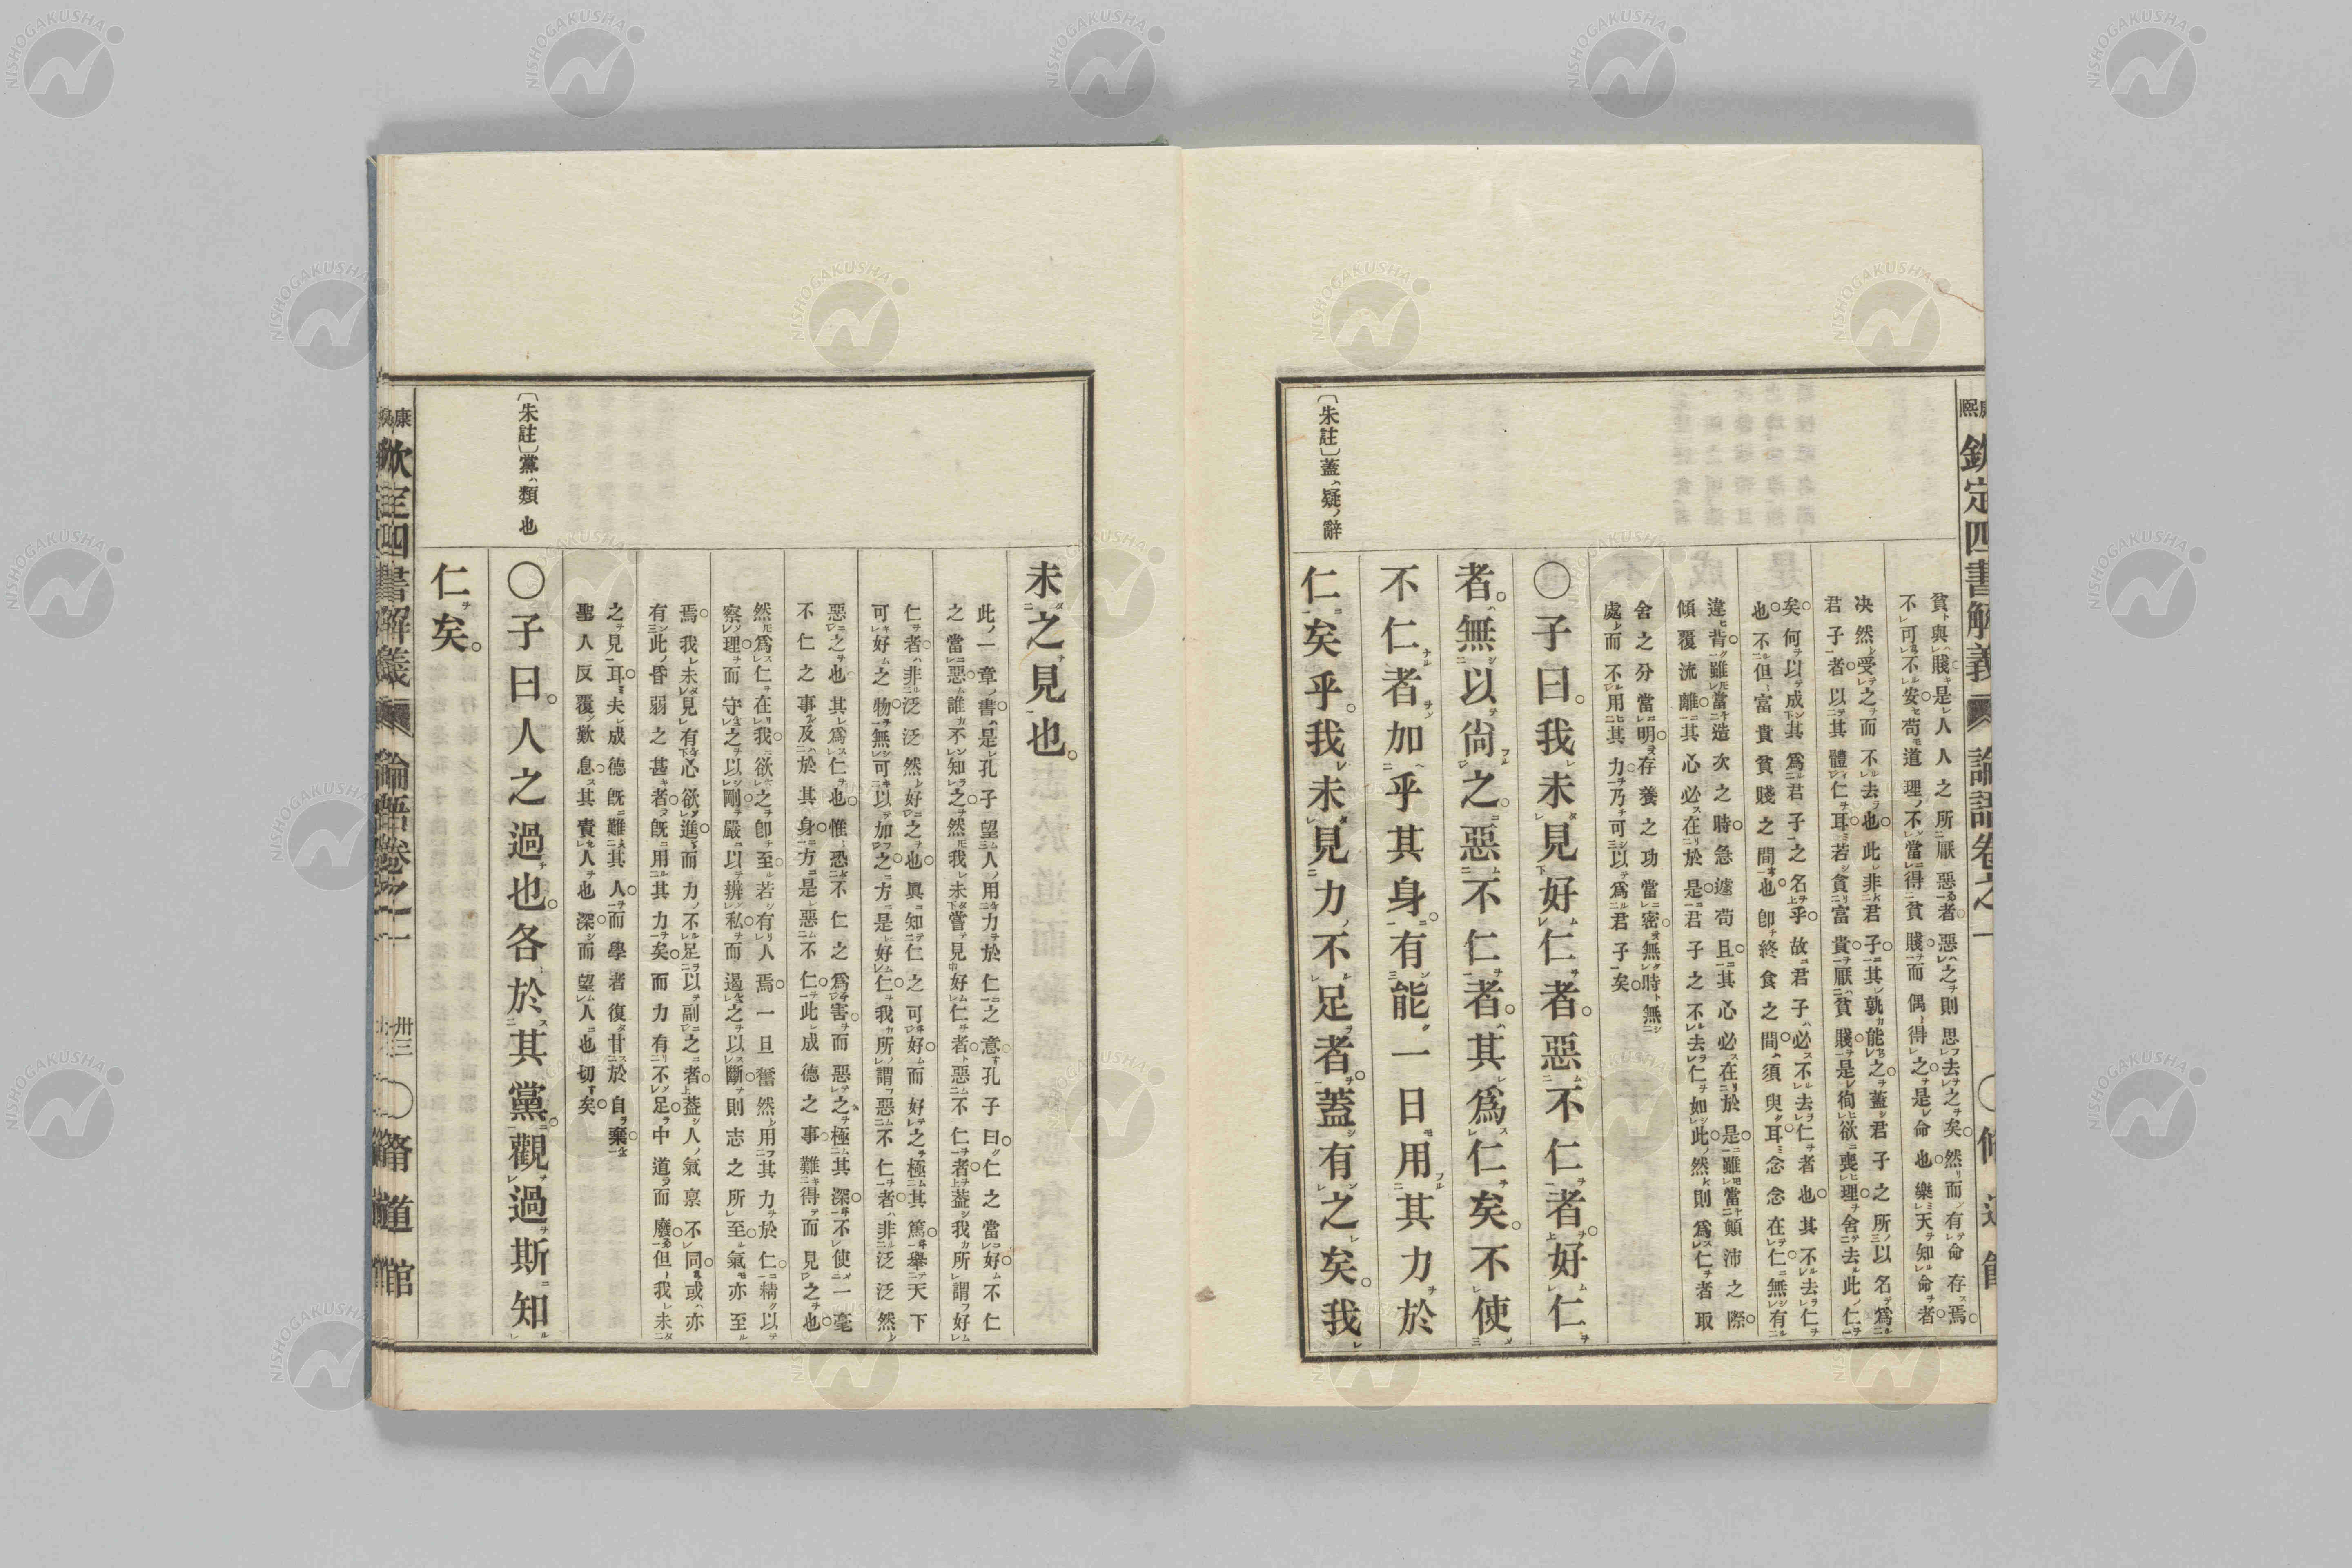 欽定四書解義
論語卷之一
貧與賤是人人之所厭惡者惡之則思去之矣然而有命存焉
不可不安苟道理不當得貧賤而偶得之是命也樂天知命者
决然受之而不去也此非君子其孰能之蓋君子之所以名爲
君子者以其體仁耳若貪富貴厭貧賤是徇欲喪理舍去此仁
矣何以成其爲君子之名乎故君子必不去仁者也其不去仁
也不但富貴貧賤之間也卽終食之間須與耳念念在仁無有
違背雖當造次之時急遽苟且其心必在於是雖當顛沛之際
傾覆流離其心必在於是君子之不去仁如此然則爲仁者取
舍之分當明存養之功當密無時無
處而不用其力乃可以爲君子矣
〇子曰。我未見好仁者。惡不仁者。好仁
者。無以尙之。惡不仁者。其爲仁矣。不使
不仁者加乎其身。有能一日用其力於
仁矣乎。我未見力不足者。蓋有之矣。我
〔朱註〕蓋疑辭
未之見也。
此一章書是孔子望人用力於仁之意孔子曰仁之當好不仁
之當惡誰不知之然我未嘗見好仁者惡不仁者葢我所謂好
仁者非泛泛然好之也眞知仁之可好而好之極其篤舉天下
可好之物無可以加之方是好仁我所謂惡不仁者非泛泛然
惡之也其爲仁也惟恐不仁之爲害而惡之極其深不使一毫
不仁之事及於其身方是惡不仁此成德之事難得而見之也
然爲仁在我欲之卽至若有人焉一旦奮然用其力於仁精以
察理而守之以剛嚴以辨私而遏之以斷則志之所至氣亦至
焉我未見有心欲進而力不足以副之者葢人氣禀不同或亦
有此昏弱之甚者旣用其力矣而力有不足中道而廢但我未
之見耳夫成德旣難其人而學者復甘於自棄
聖人反覆歎息其責人也深而望人也切矣
〇子曰。人之過也。各於其黨。觀過斯知
仁矣。
〔朱註〕黨類也
康
欽定四書解義
論語卷之一
卅三
〇脩道館